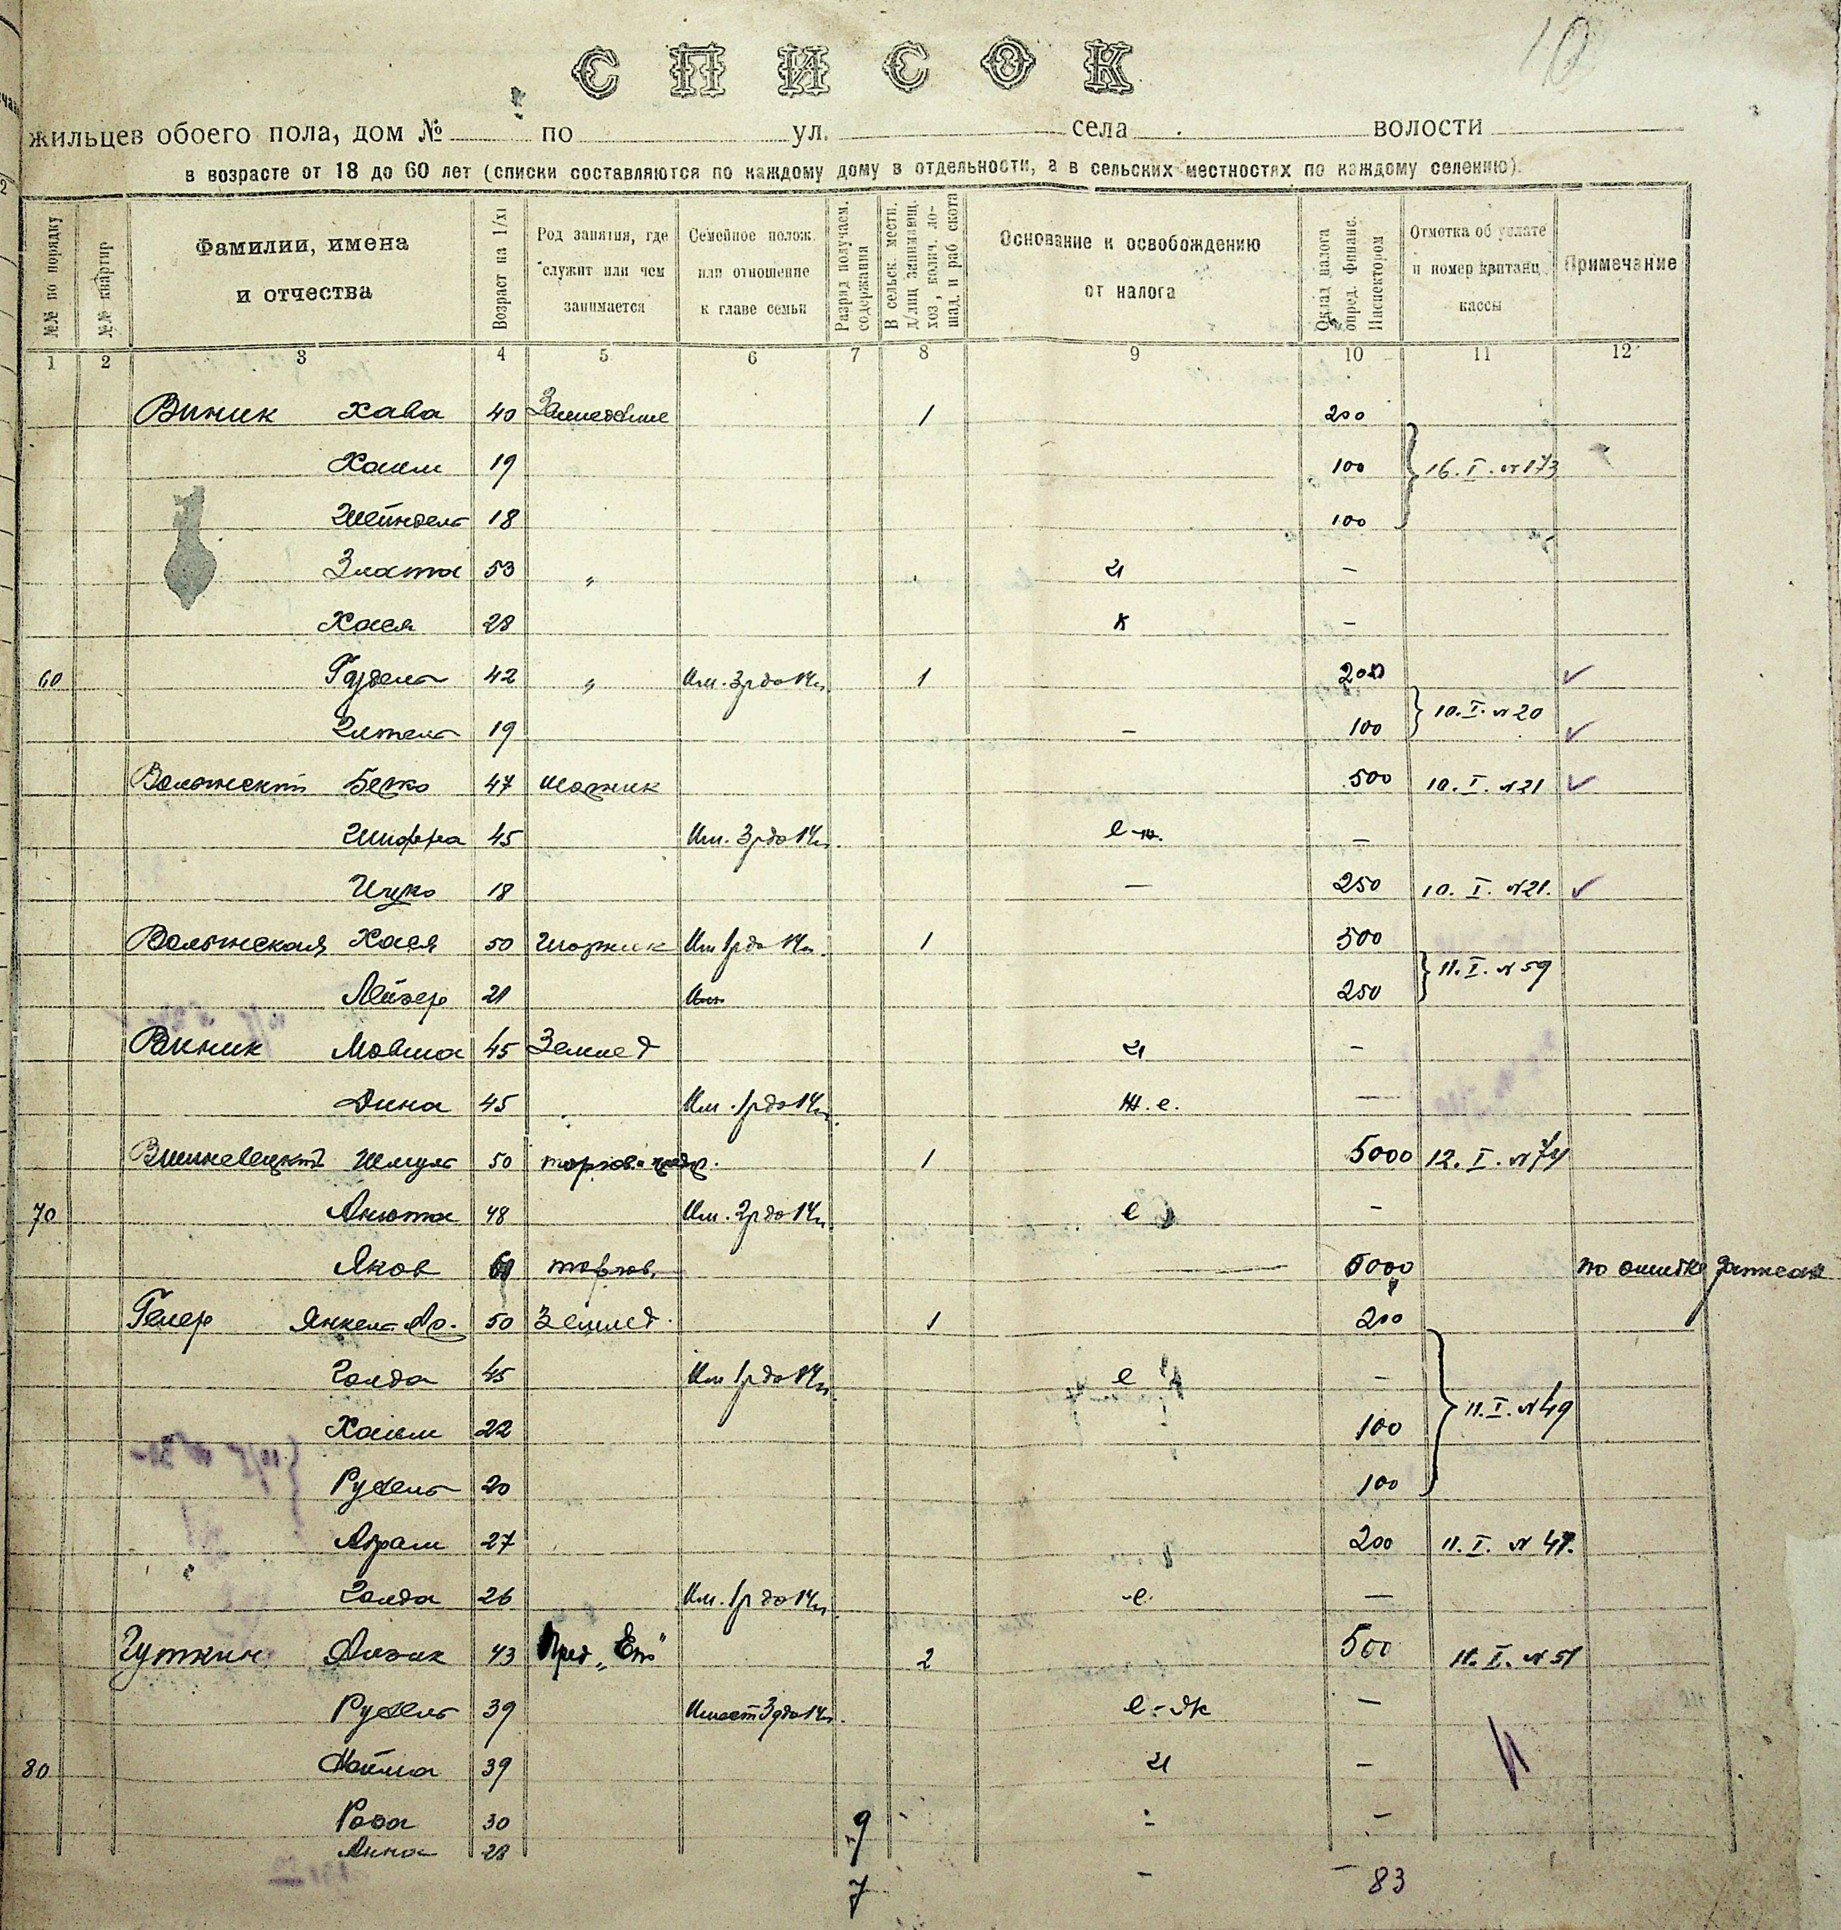 10
СПИСОК
жильцев обоего пола, дом № по ул. села волости
в возрасте от 18 до 60 лет (списки составляются по каждому дому в отдельности, а в сельских местностях по каждому селению).
№№ по порядку
№№ квартир
Фамилии, имена и отчества
Возраст на 1/XI
Род занятия, где служит или чем занимается
Семейное полож. или отношение к главе семьи
Разряд получаем. содержания
В сельск. местн. д/лиц занимающ. хоз., колич. ло-шад. и раб скота
Основание к освобождению от налога
Оклад налога опред. Финанс. Инспектором
Отметка об уплате и номер квитанц. кассы
Примечание
1 2 3 4 5 6 7 8 9 10 11 12
Виник Хава 40 1 200
Хаим 19 100 16. I. № 173
Шейндель 18 100
Злата 53 „ и —
Хася 28 к —
60 Гудель 42 „ Им. 3 р до 14 л 1 200
Зитель 19 — 100 10. I. № 20
Волынский Берко 47 шорник 500 10. I. № 21
Шифра 45 Им. 3 р до 14 л. —
Ицко 18 — 250 10. I. № 21.
Волынская Хася 50 Шорник Им 1 р до 14 л. 1 500
Лейзер 21 250 11. I. № 59
Виник Мовша 45 Землед и —
Дина 45 Им. 1 р до 14 л. Ж. е. —
Вишневецкий Шмуль 50 1 5000 12. I. № 74
70 Анюта 48 Им. 2 р до 14 л. е —
Яков торгов. — 5000 по ошибке записан
Гелер Янкель 50 Землед. 1 200
Голда 45 Им 1 р до 14 л. е —
Хаим 22 100 11. I. № 49
Рухель 20 100
Абрам 27 200 11. I. № 47.
Голда 26 Им. 1 р до 14 л. е. —
Гуткин Айзик 43 Пред „Епо" 2 500 11. I. № 51
Рухель 39 Имеет 3 р до 14 л. —
80 39 и —
Роза 30 9 —
Анна 28
7 — — 83